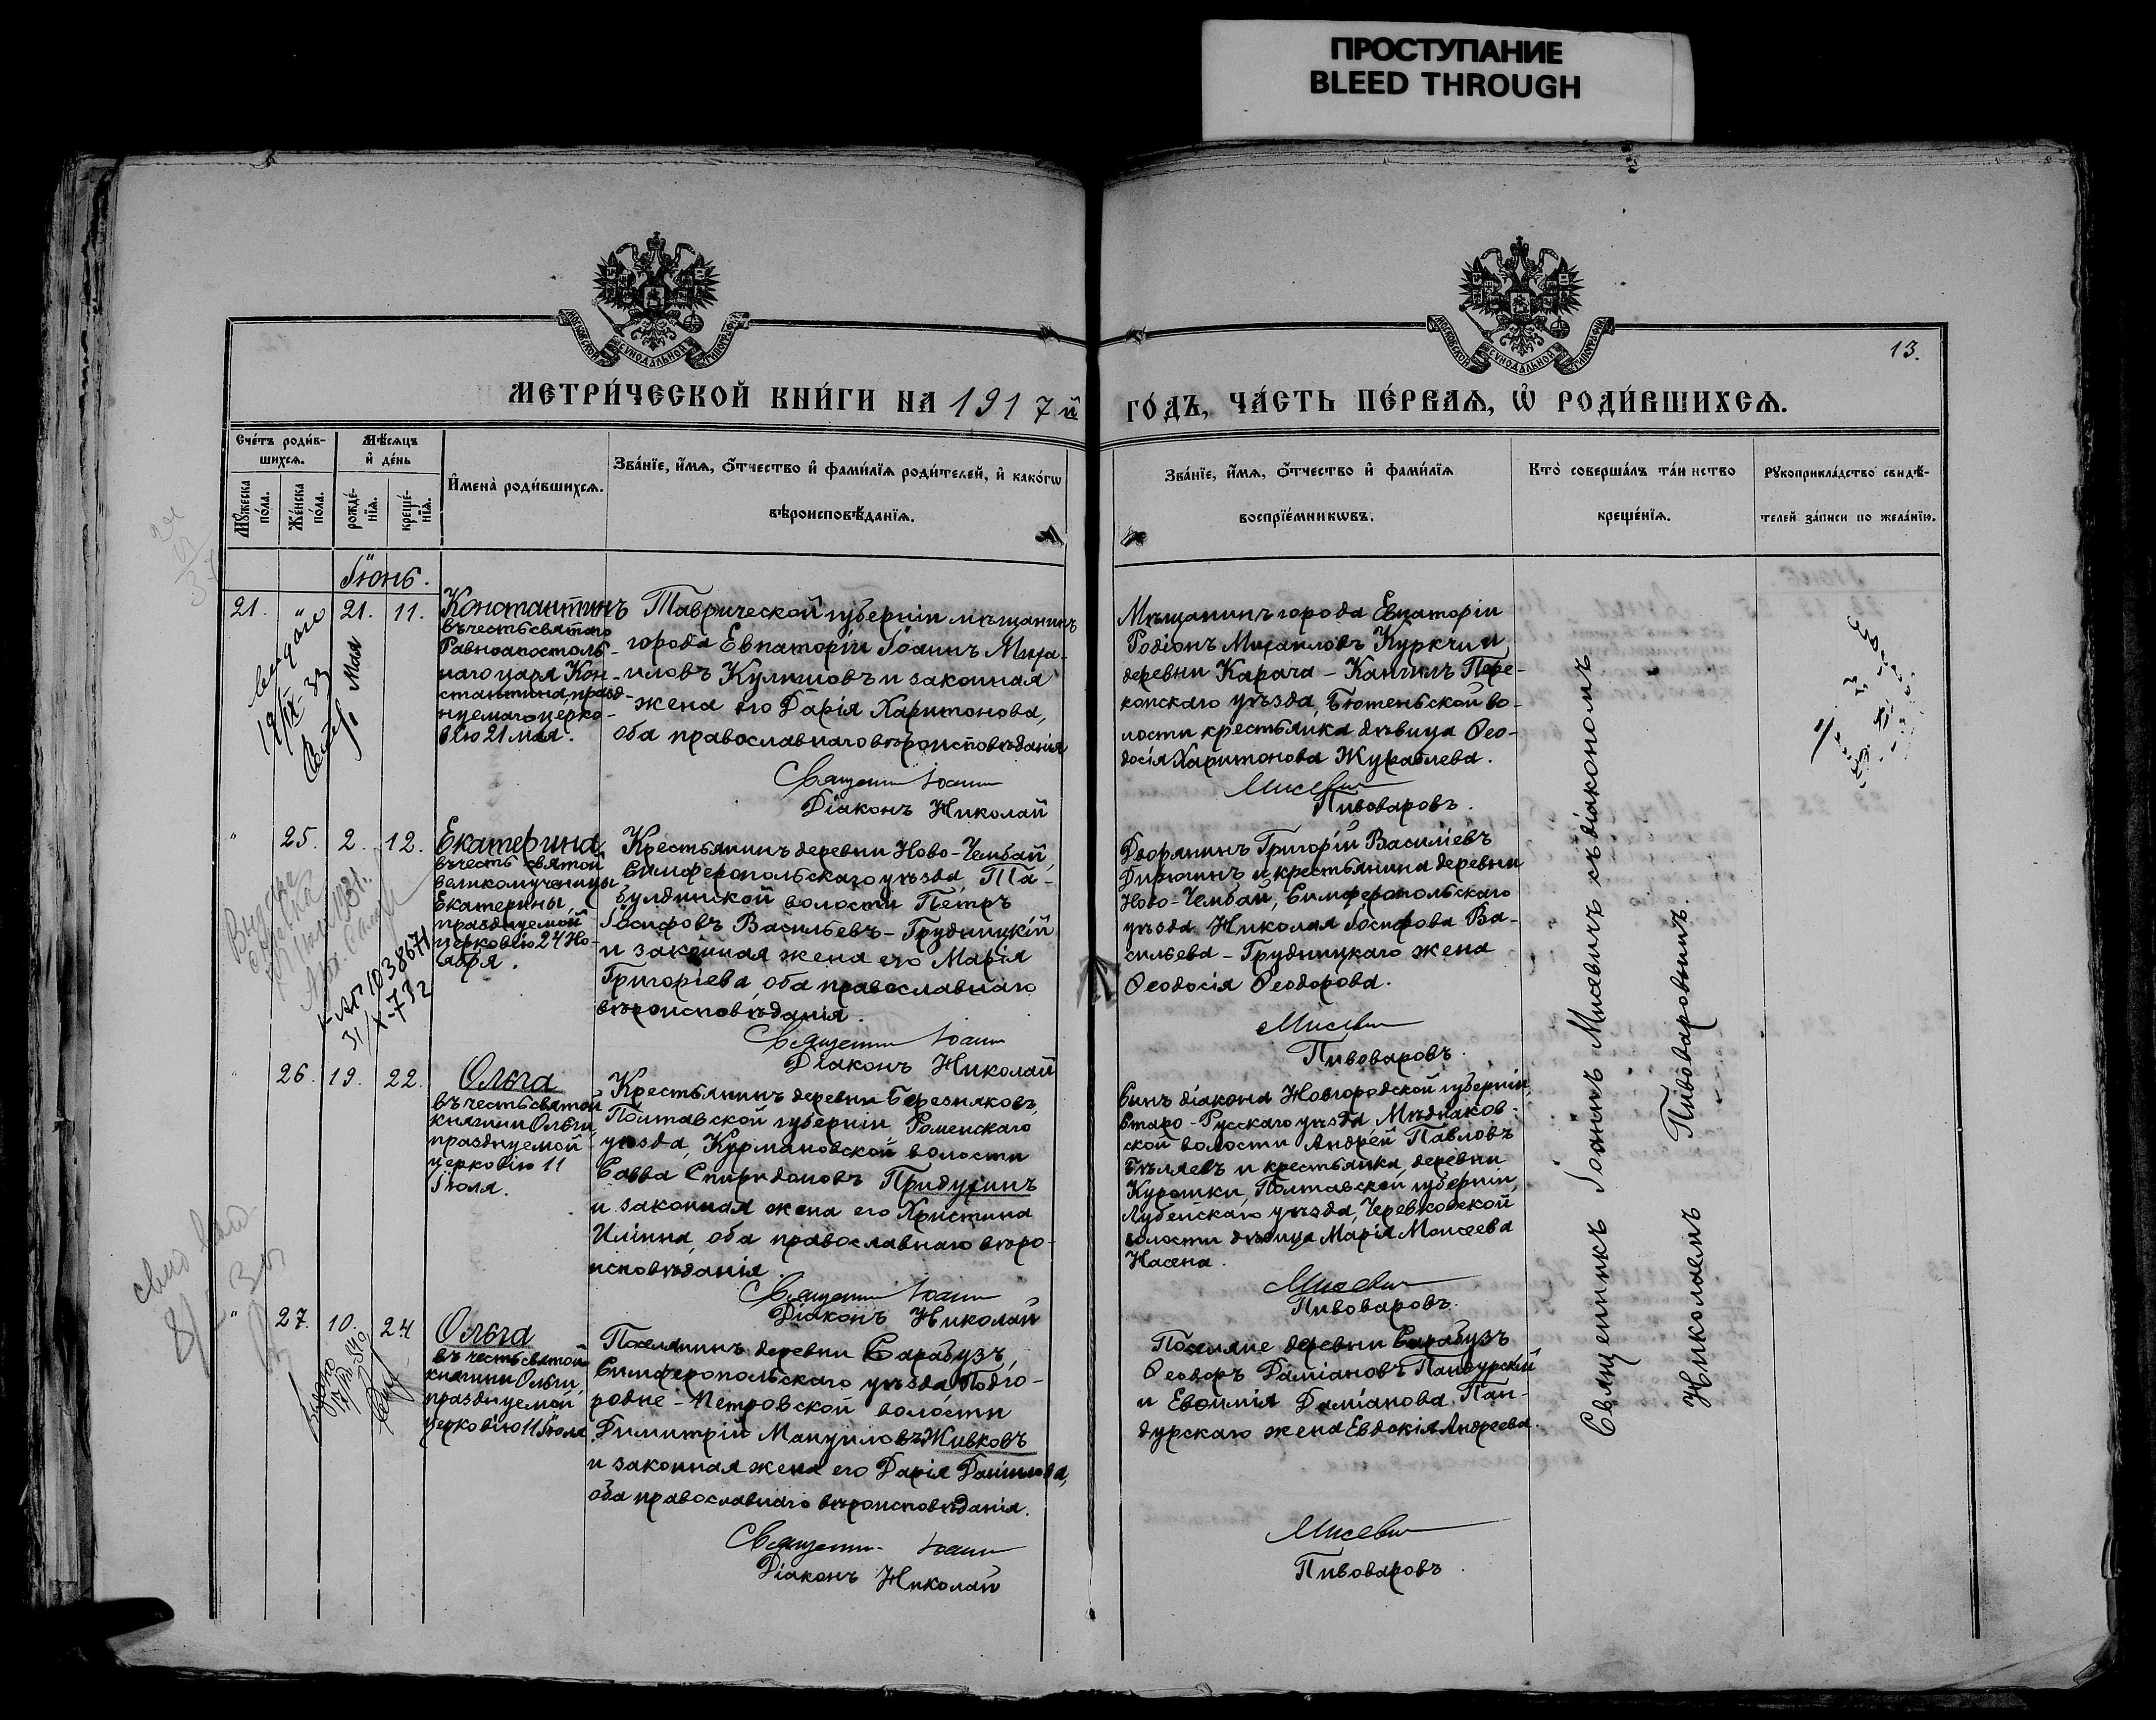 ПРОСТУПАНИЕ
BLEED THROUGH
МОСКОВСКОЙ СѴНОДАЛЬНОЙ ТИПОГРАФІИ
МОСКОВСКОЙ СѴНОДАЛЬНОЙ ТИПОГРАФІИ
13.
МЕТРИ́ЧЕСКОЙ КНИ́ГИ НА 1917й
ГО́ДЪ, ЧА́СТЬ ПЕ́РВАѦ, Ѡ҆ РОДИ́ВШИХСѦ.
Сче́тъ роди́в-
шихсѧ.
Мѣ́сѧцъ
и҆ де́нь
Мꙋ́жеска
по́ла.
Же́нска
по́ла.
рожде́-
нїѧ.
креще́-
нїѧ.
И҆мена̀ роди́вшихсѧ.
Зва́нїе, и҆́мѧ, ѻ҆́тчество и҆ фами́лїѧ роди́телей, и҆ како́гѡ
вѣроисповѣ́данїѧ.
Зва́нїе, и҆́мѧ, ѻ҆́тчество и҆ фами́лїѧ
воспрїе́мникѡвъ.
Кто̀ соверша́лъ та́инство
креще́нїѧ.
Рꙋкоприкла́дство свидѣ́-
телей за́писи по жела́нїю.
Іюнь.
21. " 21. 11.
Мая
Константинъ
въ честь святаго
Равноапостоль-
наго царя Кон-
стантина празд-
нуемаго церко-
вію 21 мая.
Таврической губерніи мѣщанинъ
города Евпаторіи Іоаннъ Миха-
иловъ Кулишовъ и законная
жена его Дарія Харитонова,
оба православнаго вѣроисповѣданія
Священникъ Іоаннъ
Діаконъ Николай
Мѣщанинъ города Евпаторіи
Родіонъ Михаиловъ Куркчи и
деревни Карача-Кангилъ Пере-
копскаго уѣзда, Бютеньской во-
лости крестьянка дѣвица Ѳео-
досія Харитонова Журавлева.
Мисевич
Пивоваровъ.
" 25. 2. 12.
Екатерина
въ честь святой
великомученицы
Екатерины,
празднуемой
церковію 24 Но-
ября.
Крестьянинъ деревни Ново-Чембай,
Симферопольскаго уѣзда, Та-
булдинской волости Петръ
Іосифовъ Васильевъ-Грудницкій
и законная жена его Марія
Григоріева, оба православнаго
вѣроисповѣданія.
Священникъ Іоаннъ
Діаконъ Николай
Дворянинъ Григорій Василіевъ
Дирютинъ и крестьянина деревни
Ново-Чембай, Симферопольскаго
уѣзда Николая Іосифова Ва-
сильева-Грудницкаго жена
Ѳеодосія Ѳеодорова.
Мисевич
Пивоваровъ.
" 26. 19. 22.
Ольга
въ честь святой
княгини Ольги,
празднуемой
церковію 11
Іюля.
Крестьянинъ деревни Березняковъ,
Полтавской губерніи Роменскаго
уѣзда, Курмановской волости
Савва Спиридоновъ Придухинъ
и законная жена его Христина
Иліина, оба православнаго вѣро-
исповѣданія.
Священникъ Іоаннъ
Діаконъ Николай
Сынъ діакона Новгородской губерніи,
Старо-Русскаго уѣзда Мѣдняков-
ской волости Андрей Павловъ
Бѣляевъ и крестьянка деревни
Курошки, Полтавской губерніи,
Лубенскаго уѣзда, Черевковской
волости дѣвица Марія Моисеева
Насена.
Мисевич
Пивоваровъ.
" 27. 10. 24
Ольга
въ честь святой
княгини Ольги,
празднуемой
церковію 11 Іюля
Поселянинъ деревни Сарабузъ,
Симферопольскаго уѣзда, Подго-
родне-Петровской волости
Димитрій Мануиловъ Живковъ
и законная жена его Дарія Даніилова,
оба православнаго вѣроисповѣданія.
Священникъ Іоаннъ
Діаконъ Николай
Поселяне деревни Сарабузъ
Ѳеодоръ Даміановъ Пандурскій
и Евѳимія Даміанова Пан-
дурскаго жена Евдокія Андреева.
Мисевич
Пивоваровъ.
Священникъ Іоаннъ Мисевичъ съ діакономъ
Николаемъ Пивоваровымъ.